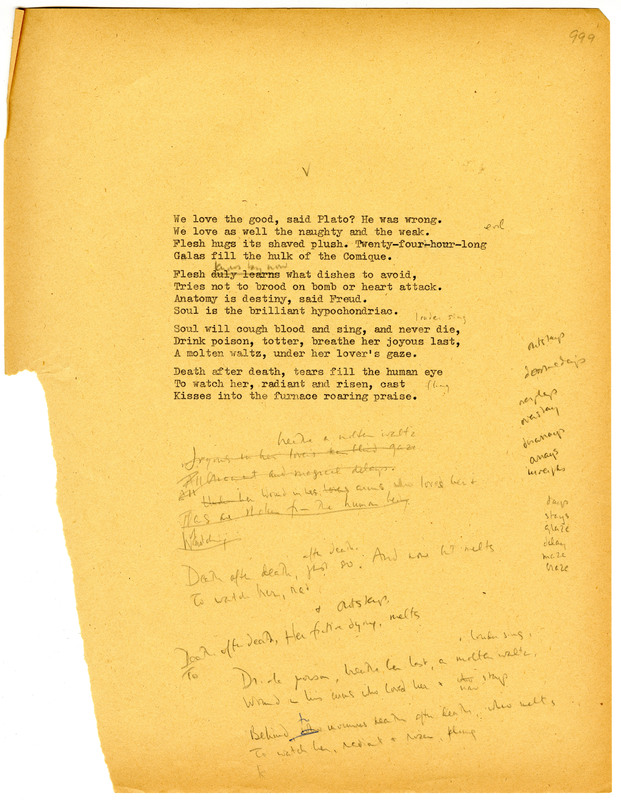 999
V
We love the good, said Plato? He was wrong.
We love as well the naughty and the weak.
evil
Flesh hugs its shaved plush. Twenty-four-hour-long
Galas fill the hulk of the Comique.
knows by now
Flesh duly learns what dishes to avoid,
Tries not to brood on bomb or heart attack.
Anatomy is destiny, said Freud.
Soul is the brilliant hypochondriac.
louder sing
Soul will cough blood and sing, and never die,
Drink poison, totter, breathe her joyous last,
A molten waltz, under her lover's gaze.
Death after death, tears fill the human eye
To watch her, radiant and risen, cast
fling
Kisses into the furnace roaring praise.
outstays
doomsdays
overstay
arrays
days
stays
glaze
delay
maze
blaze
breathe a molten waltz
Joyous in her lover's gaze
and magical delays.
her arms who loves her +
the human being
Watching
after death.
Death after death, just so. And now melts
To watch her,
+ Outstays
Death after death, Her dying, melts
To
louder sing,
Drink poison, breathe her last, a molten waltz,
Wound in his arms who loved her + now stays
Behind the death after death, who melts,
To watch her, radiant + risen, fling
k